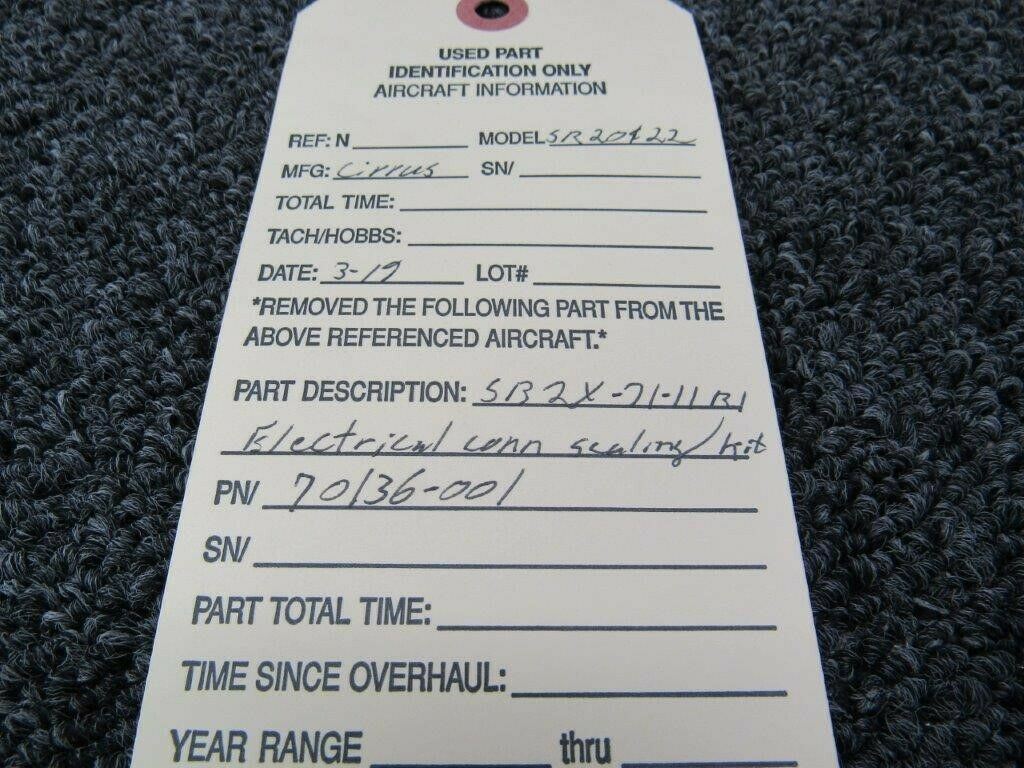 USED PART
IDENTIFICATION ONLY
AIRCRAFT INFORMATION
REF: N MODEL SR20422
MFG: Cirrus SN/
TOTAL TIME:
TACH/HOBBS:
DATE: 3-19 LOT#
*REMOVED THE FOLLOWING PART FROM THE
ABOVE REFERENCED AIRCRAFT.*
PART DESCRIPTION: SB2X-71-11 R1
Electrical conn sealing kit
PN/ 70136-001
SN/
PART TOTAL TIME:
TIME SINCE OVERHAUL:
YEAR RANGE thru